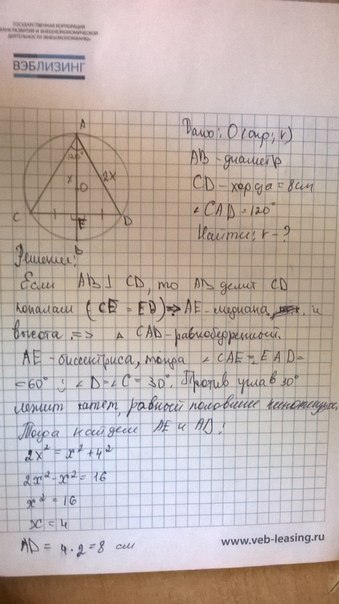 ГОСУДАРСТВЕННАЯ КОРПОРАЦИЯ
БАНК РАЗВИТИЯ И ВНЕШНЕЭКОНОМИЧЕСКОЙ
ДЕЯТЕЛЬНОСТИ (ВНЕШЭКОНОМБАНК)
ВЭБЛИЗИНГ
A
120°
x
2x
O
C
E
D
B
Дано: O(окр; r)
AB - диаметр
CD - хорда = 8см
∠CAD = 120°
Найти: r - ?
Решение:
Если AB ⊥ CD, то AB делит CD
попалам (CE = ED) => AE - медиана, и
высота, => △ CAD - равнобедренный.
AE - биссектриса, тогда ∠CAE = EAD =
= 60°; ∠D = ∠C = 30°. Против угла в 30°
лежит катет, равный половине гипотенузы.
Тогда найдем AE и AD:
2x² = x² + 4²
2x² - x² = 16
x² = 16
x = 4
AD = 4 · 2 = 8 см
www.veb-leasing.ru